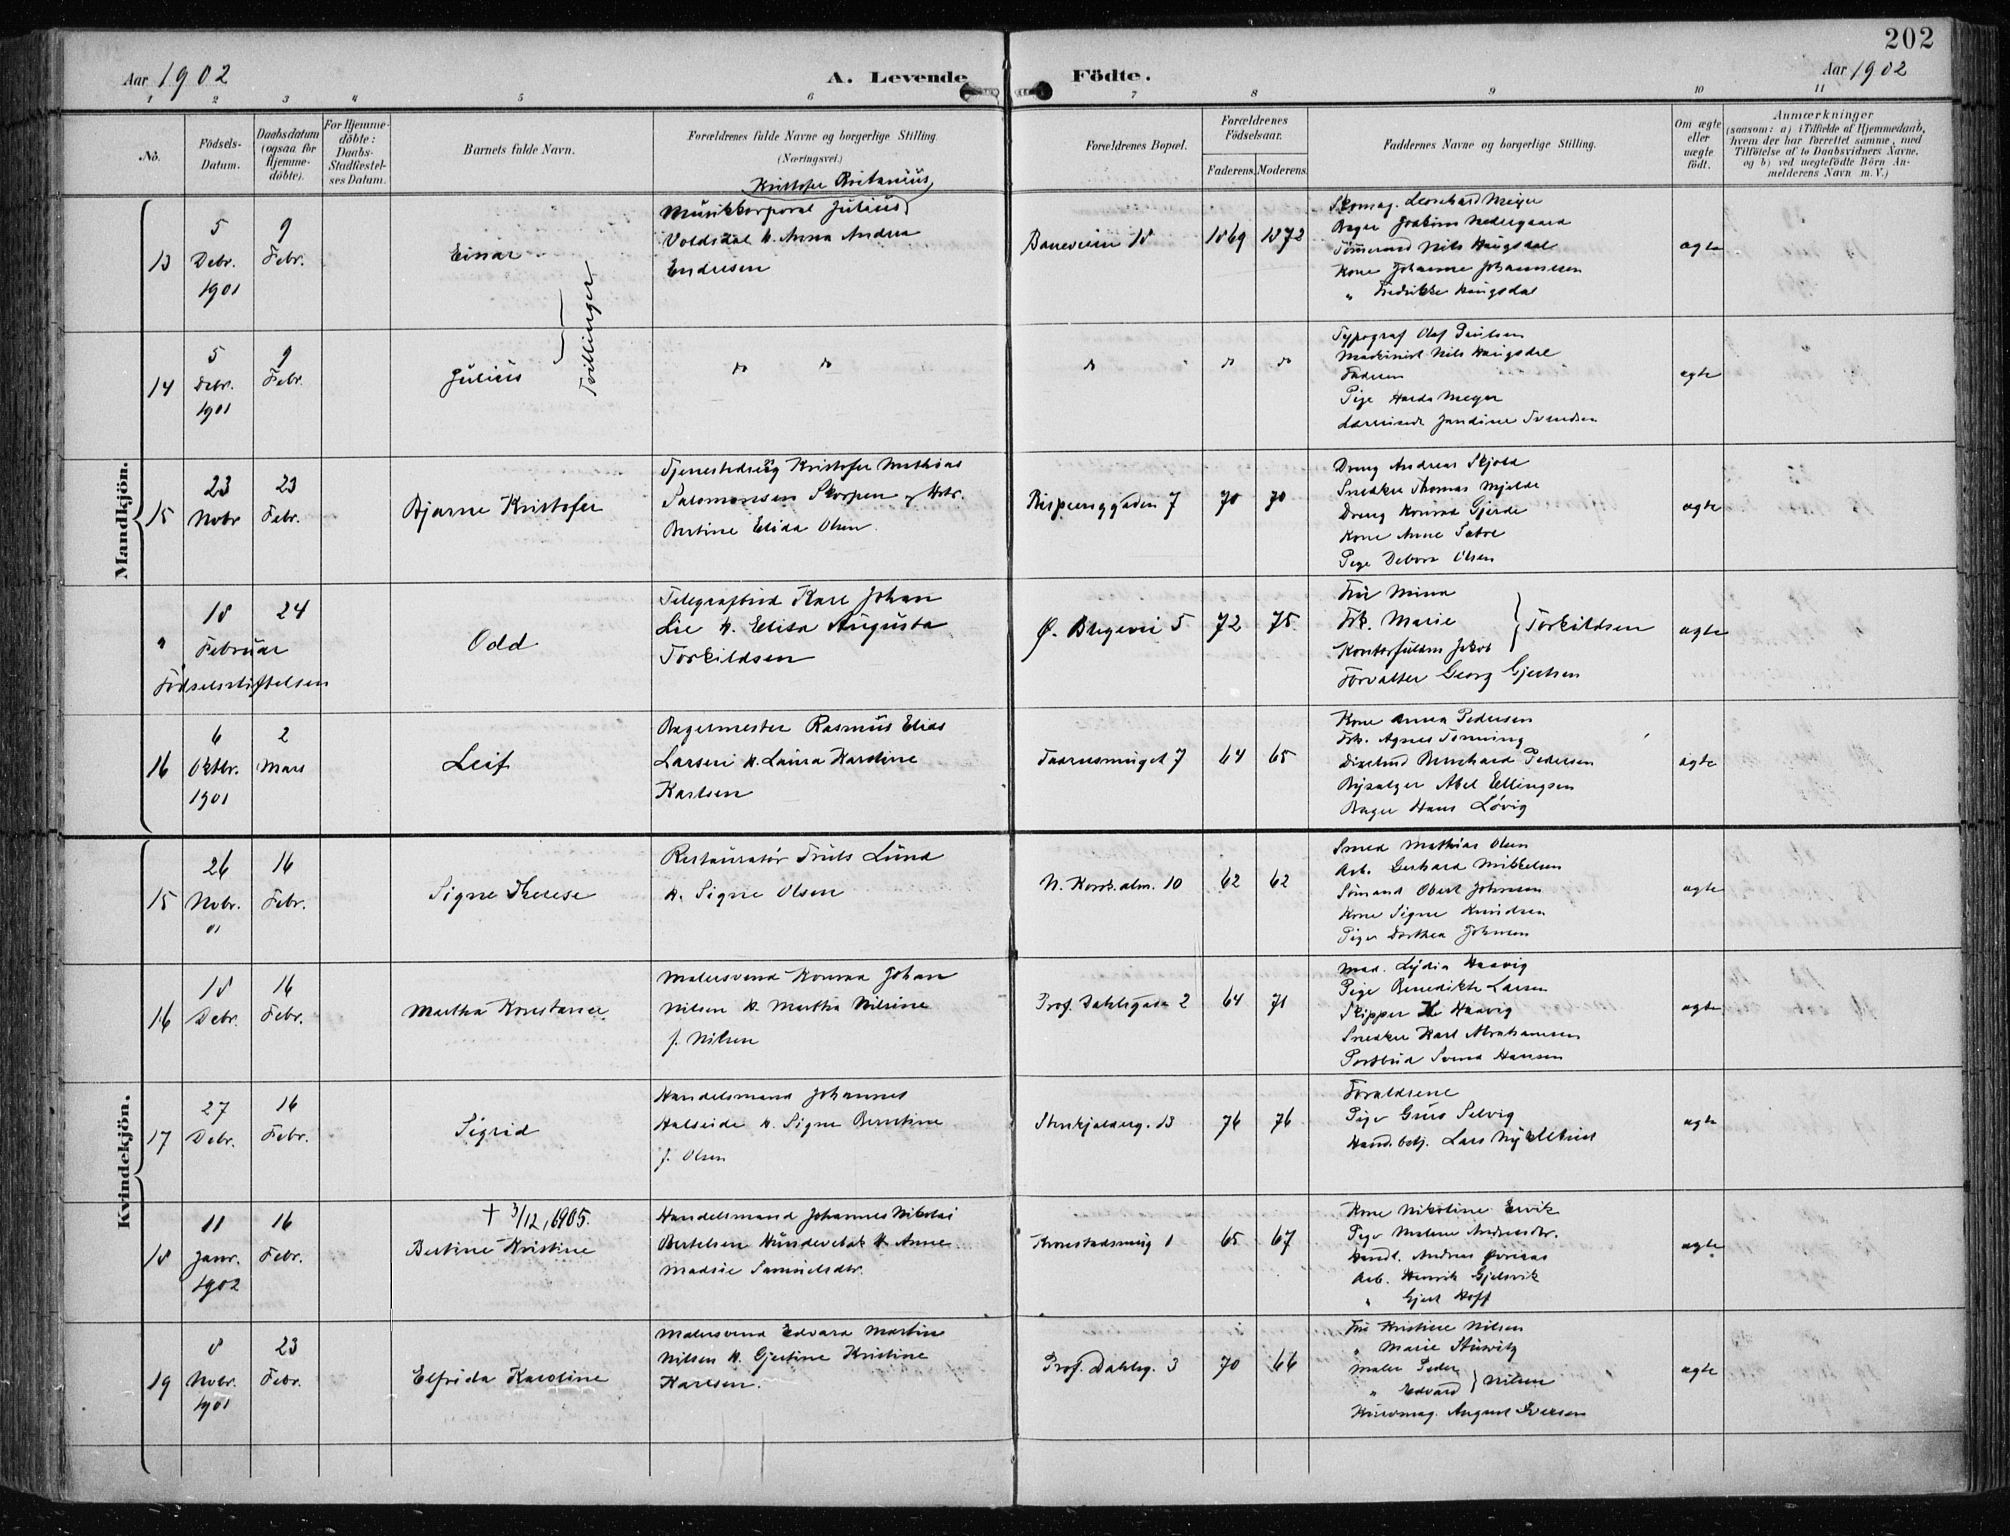 202
Aar 1902
A. Levende Födte.
Aar 1902
1 2 3 4 5 6 7 8 9 10 11
No.
Födsels-
Datum.
Daabsdatum
(ogsaa for
Hjemme-
døbte).
For Hjemme-
døbte:
Daabs-
Stadfæstel-
ses Datum.
Barnets fulde Navn.
Forældrenes fulde Navne og borgerlige Stilling.
(Næringsvei.)
Forældrenes Bopæl.
Forældrenes
Födselsaar.
Faderens. Moderens.
Faddernes Navne og borgerlige Stilling.
Om ægte
eller
uægte
födt.
Anmærkninger
(saasom: a) i Tilfælde af Hjemmedaab,
hvem der har forrettet samme, med
Tilföielse af to Daabsvidners Navne,
og b) ved uegtefödte Börn An-
melderens Navn m. V.)
Mandkjön.
13
5
Debr.
1901
9
Febr.
Einar
Tvillinger
Kristofer Britanius
Musikkorporal Julius
Voldsdal h. Anna Andrea
Endresen
1869 1872
Skomag. Leonhard Meyer
Bager Joakim Nedergaard
Tømmermd Nils Haugsdal
Kone Johanne Johannesen
" Fredrikke Haugsdal
ægte
14
5
Debr.
1901
9
Febr.
Julius
do do
do do do
Typograf Olaf Paulsen
Maskinist Nils Haugsdal
Faderen
Pige Meyer
Jandine Svendsen
ægte
15
23
Nobr
23
Febr.
Bjarne Kristofer
Tjenestedreng Kristofer Mathias
Salomonsen Skorpen og Hstr.
Bertine Elida Olsen.
70 70
Dreng Andreas Skjold
Snedker Thomas Mjelde
Dreng Konrad Gjerde
Kone Anne
Pige Debora Olsen
ægte
"
18 24
Februar
Fødselsstiftelsen
Odd
Telegrafbud Karl Johan
Lie h. Elisa Augusta
Torkildsen
Ø. Blegevei 5
72 75.
Fru Mina
Frk. Marie
Kontorfuldm Jakob
Torkildsen
Forvalter Georg Gjertsen
ægte
16
6
Oktbr.
1901
2
Mars
Leif
Bagermester Rasmus Elias
Larsen h. Laura Karoline
Karlsen
64 65
Kone Anna Pedersen
Frk. Agnes Tonning
Bernhard Pedersen
Abel Ellingsen
Bager Hans Løvig
ægte
Kvindekjön.
15
26
Nobr.
01
16
Febr.
Signe Therese
Restauratør Truls Lund
h. Signe Olsen
N. Korsk.alm. 10
62 62
Smed Mathias Olsen
Arb. Gerhard Mikkelsen
Sømand Obert Johnsen
Kone Signe Knudsen
Pige Dorthea Johnsen
ægte
16
18
Debr.
16
Febr.
Martha Konstanse
Malersvend Konrad Johan
Nilsen h. Martha Nilsine
f. Nilsen
Prof. Dahlsgade 2
64 71
Mad. Lydia Haavig
Pige Benedikte Larsen
Skipper K Haavig
Snedker Karl Abrahamsen
Postbud Svend Hansen
ægte
17
27
Debr.
16
Febr.
Sigrid
Handelsmand Johannes
Halseide h. Signe Berntine
f. Olsen
Stenkjelderg. 13
76 76
Forældrene
Pige Guro Selvig
Handbetj. Lars
ægte
18
11
Janr.
1902
16
Febr.
† 3/12, 1905.
Bertine Kristine
Handelsmand Johannes Nikolai
Bertelsen Hundevebak h. Anne
Madsie Samuelsdtr.
Kronstadsmug 1
65 67
Kone Nikoline Ervik
Pige Malene Andreasdr.
Handl. Andreas
Arb. Henrik Gjelsvik
" Gjert Hoff
ægte
19
8
Nobr.
1901
23
Febr.
Elfrida Karoline
Malersvend Edvard Martin
Nilsen h. Gjertine Kristine
Karlsen.
Prof. Dahlsg. 3
70 66
Fru Kristine Nilsen
" Marie Stuwitz
Maler Peder
" Edvard
Nilsen
August Iversen
ægte